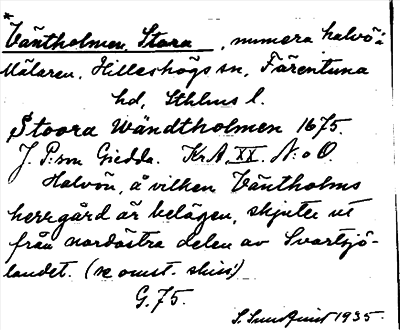 * Väntholmen, Stora, numera halvö i
Mälaren, Hilleshögs sn, Färentuna
hd, Sthlms l.
Stoora Wändtholmen 1675.
J. P:sm Giedda. Kr.A. XX. N:o O.
Halvön, å vilken Väntholms
herrgård är belägen, skjuter ut
från nordöstra delen av Svartsjö-
landet. (se omst. skiss)
G. 75.
S. Sundquist 1935.